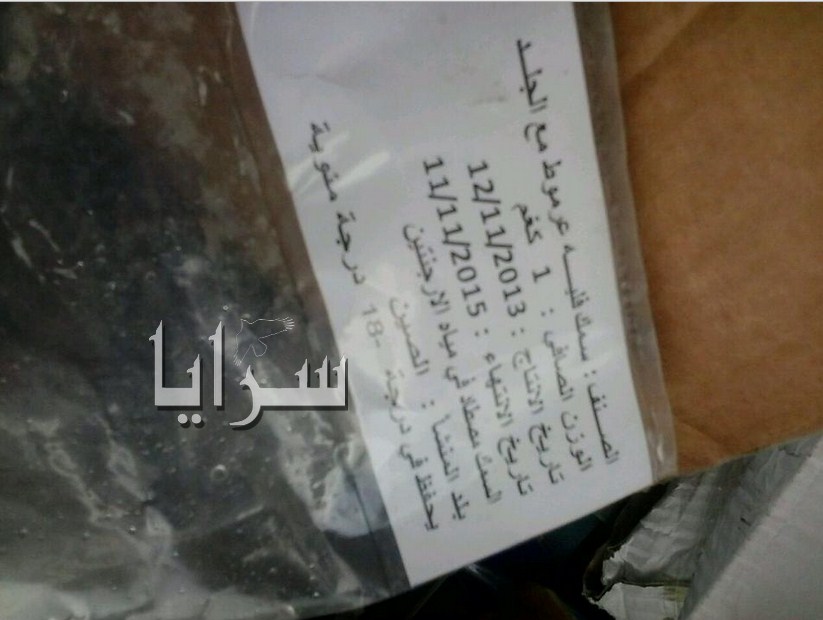 الصنف : سمك فليه عرموط مع الجلد
الوزن الصافي : 1 كغم
تاريخ الانتاج : 12/11/2013
تاريخ الانتهاء : 11/11/2015
السمك مصطاد في مياه الارجنتين
بلد المنشا : الصين
يحفظ في درجة -18 درجة مئوية
سرايا